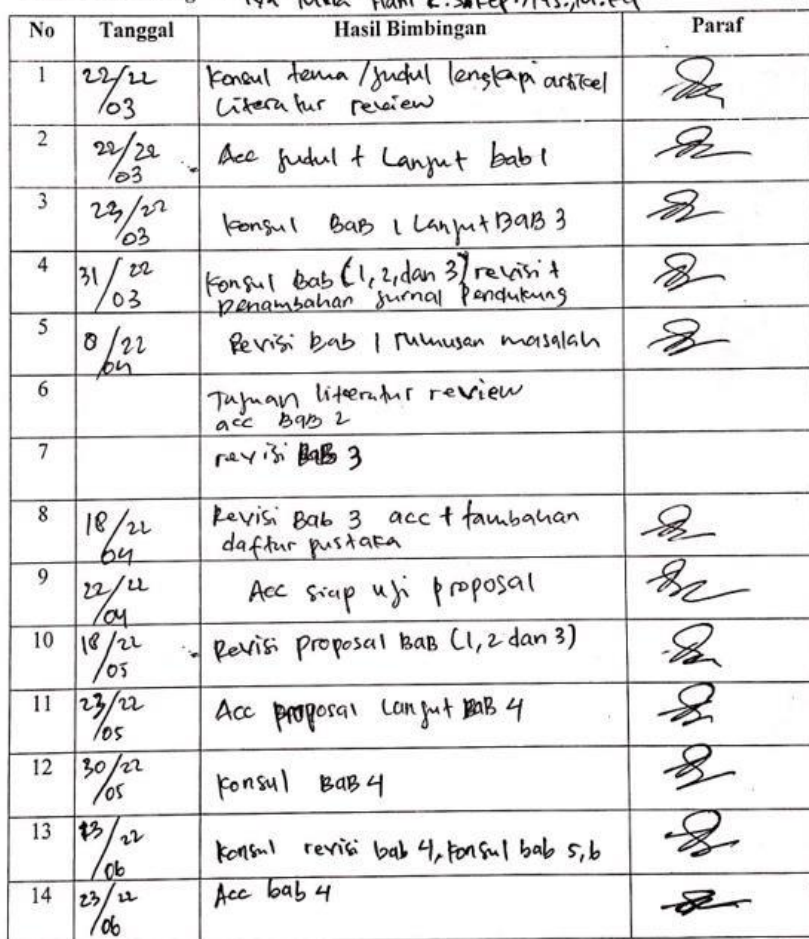 No Tanggal Hasil Bimbingan Paraf
1 22/22 03 Konsul tema / judul lengkapi artikel
Literatur review
2 22/22 03 Acc judul + Lanjut bab 1
3 23/22 03 Konsul BAB 1 Lanjut BAB 3
4 31/22 03 Konsul Bab (1, 2, dan 3) revisi +
penambahan jurnal Pendukung
5 8/22 04 Revisi bab 1 rumusan masalah
6 Tujuan literatur review
acc BAB 2
7 revisi BAB 3
8 18/22 04 Revisi Bab 3 acc + tambahan
daftar pustaka
9 22/22 04 Acc siap uji proposal
10 18/22 05 Revisi proposal BAB (1, 2 dan 3)
11 23/22 05 Acc proposal Lanjut BAB 4
12 30/22 05 Konsul BAB 4
13 13/22 06 Konsul revisi bab 4, Konsul bab 5, 6
14 23/22 06 Acc bab 4